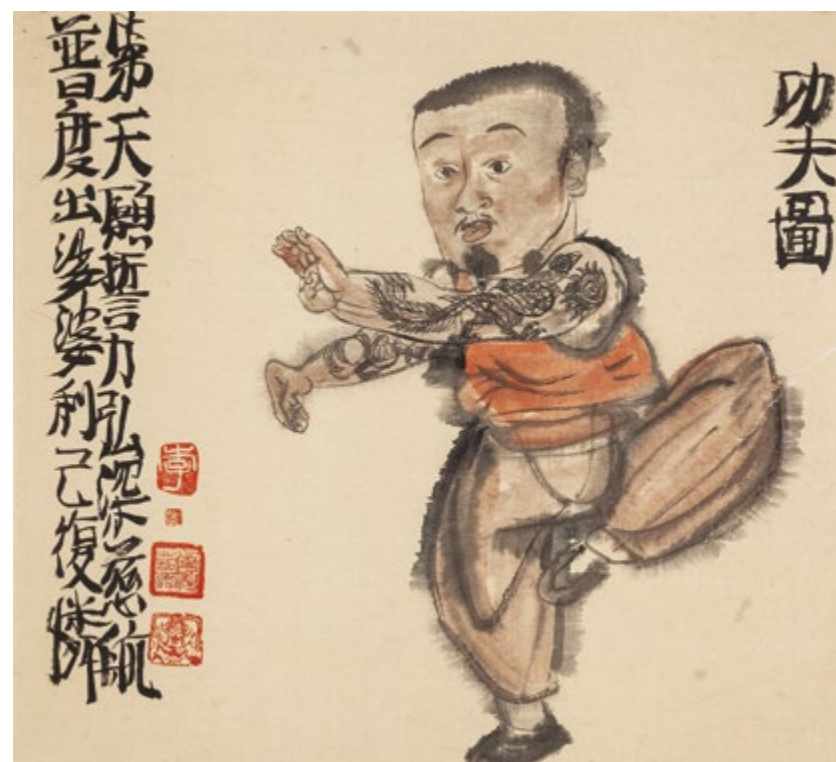 功夫圖
第天願誓力弘深慈航
普度出娑婆利己復憐
李